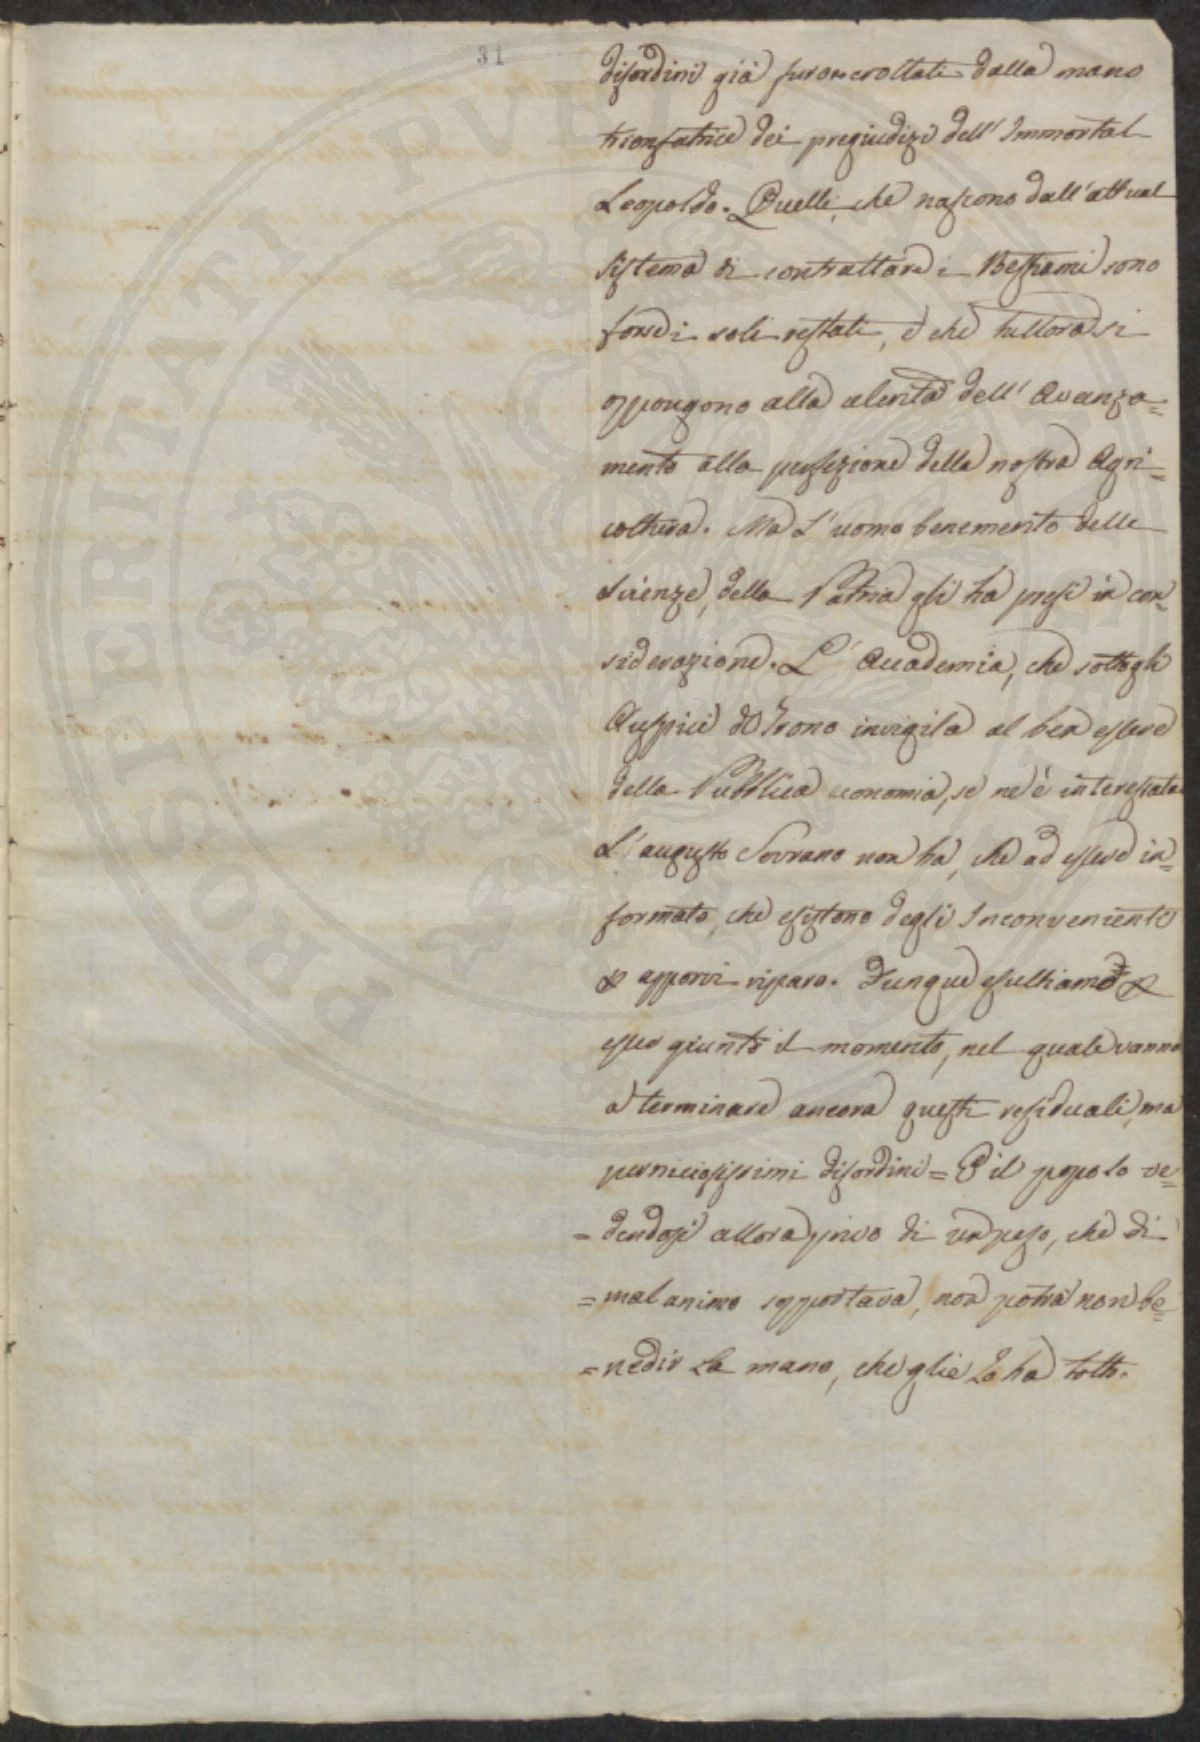 31
disordini già furon crollati dalla mano
trionfatrice dei pregiudizi dell' Immortal
Leopoldo. Quelli, che nascono dall' attual
sistema di contrattare i Bestiami sono
forse i soli restati, e che tuttora si
oppongono alla celerità dell' Avanza=
mento alla perfezione della nostra Agri=
coltura. Ma L' uomo benemerito delle
scienze, della Patria gli ha presi in con=
siderazione. L' Accademia, che sotto gli
Auspici del Trono invigila al ben essere
della Pubblica economia, se ne è interessata
L' augusto Sovrano non ha, che ad essere in=
formato, che esistono degli Inconvenienti
& apporvi riparo. Dunque esultiamo &
esser giunto il momento, nel quale vanno
a terminare ancora questi residuali, ma
perniciosissimi disordini = E il popolo ve=
= dendosi allora privo di un peso, che di
= mal animo sopportava, non potrà non be=
= nedir La mano, che glie Lo ha tolto.
PROSPERITATI